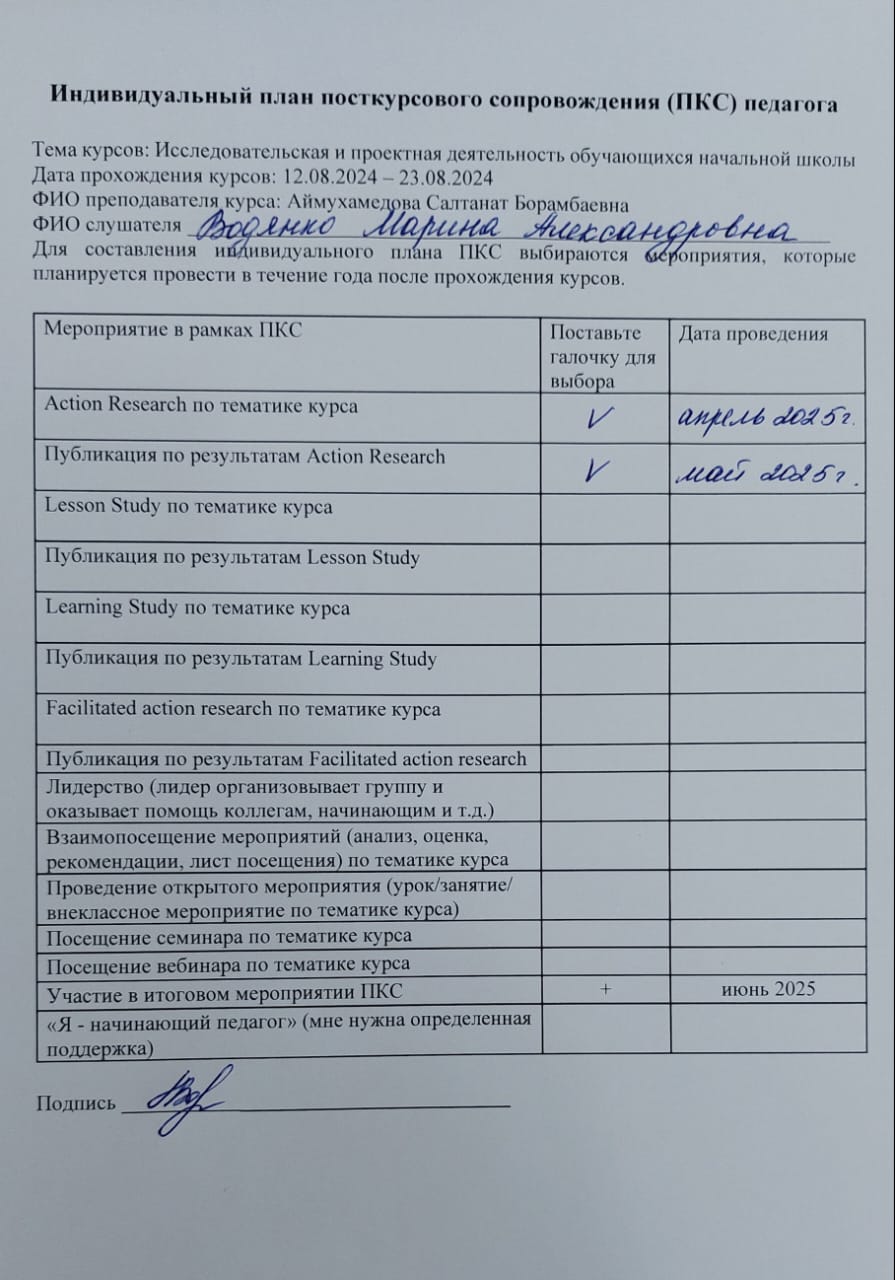 Индивидуальный план посткурсового сопровождения (ПКС) педагога
Тема курсов: Исследовательская и проектная деятельность обучающихся начальной школы
Дата прохождения курсов: 12.08.2024 – 23.08.2024
ФИО преподавателя курса: Аймухамедова Салтанат Борамбаевна
ФИО слушателя Водянко Марина Александровна
Для составления индивидуального плана ПКС выбираются мероприятия, которые
планируется провести в течение года после прохождения курсов.
Мероприятие в рамках ПКС Поставьте галочку для выбора Дата проведения
Action Research по тематике курса V апрель 2025г.
Публикация по результатам Action Research V май 2025г.
Lesson Study по тематике курса
Публикация по результатам Lesson Study
Learning Study по тематике курса
Публикация по результатам Learning Study
Facilitated action research по тематике курса
Публикация по результатам Facilitated action research
Лидерство (лидер организовывает группу и
оказывает помощь коллегам, начинающим и т.д.)
Взаимопосещение мероприятий (анализ, оценка,
рекомендации, лист посещения) по тематике курса
Проведение открытого мероприятия (урок/занятие/
внеклассное мероприятие по тематике курса)
Посещение семинара по тематике курса
Посещение вебинара по тематике курса
Участие в итоговом мероприятии ПКС + июнь 2025
«Я - начинающий педагог» (мне нужна определенная
поддержка)
Подпись